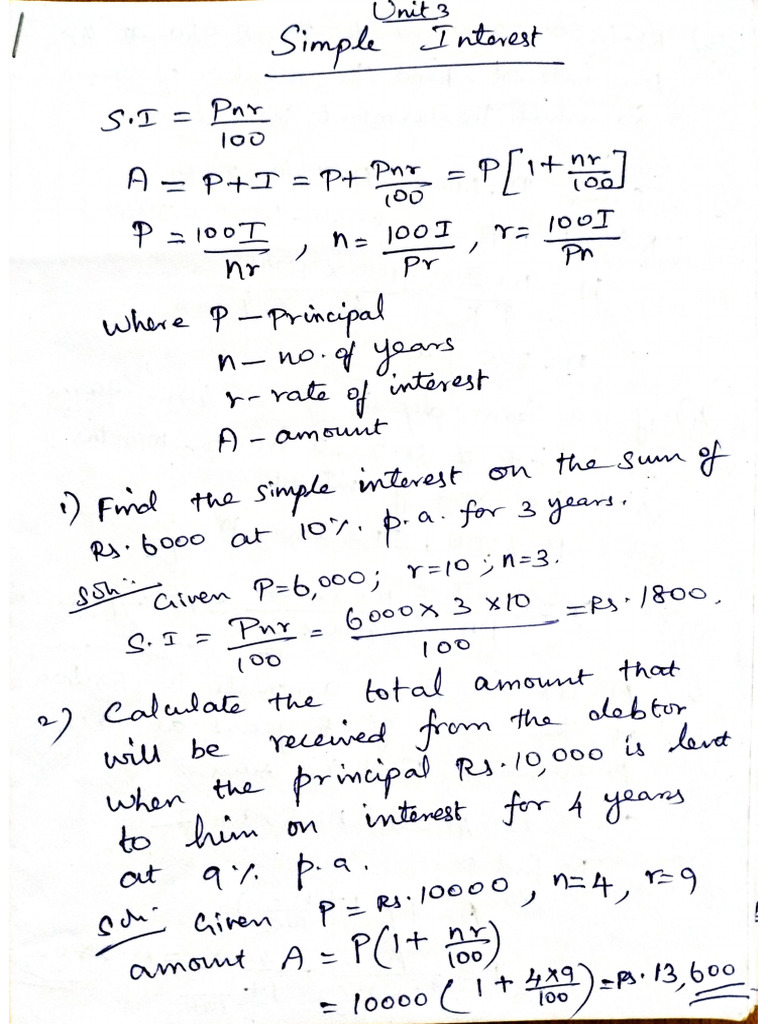 Unit 3
Simple Interest
S.I = Pnr/100
A = P+I = P+ Pnr/100 = P[1+ nr/100]
P = 100I/nr , n= 100I/Pr , r= 100I/Pn
where P – Principal
n – no. of years
r – rate of interest
A – amount
1) Find the simple interest on the sum of
Rs. 6000 at 10%. p.a. for 3 years.
Soln: Given P=6,000; r=10; n=3.
S.I = Pnr/100 = 6000 x 3 x10/100 = Rs. 1800.
2) Calculate the total amount that
will be received from the debtor
when the principal Rs.10,000 is lent
to him on interest for 4 years
at 9%. p.a.
Soln: Given P = Rs.10000, n=4, r=9
amount A = P(1+ nr/100)
= 10000 (1+ 4x9/100) = Rs. 13,600